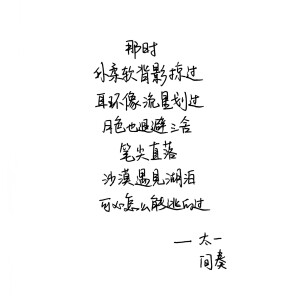 那时
你柔软背影掠过
耳环像流星划过
月色也退避三舍
笔尖直落
沙漠遇见湖泊
可心怎么能逃的过
—— 太一
间奏